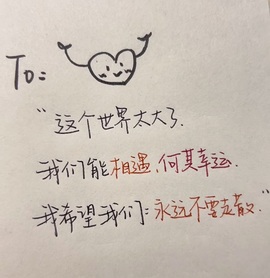 To:
“这个世界太大了.
我们能相遇,何其幸运.
我希望我们:永远不要走散.”